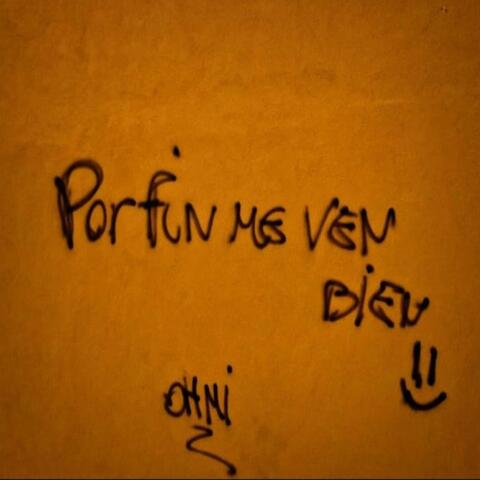 Por fin me ven
Bien
OHNI